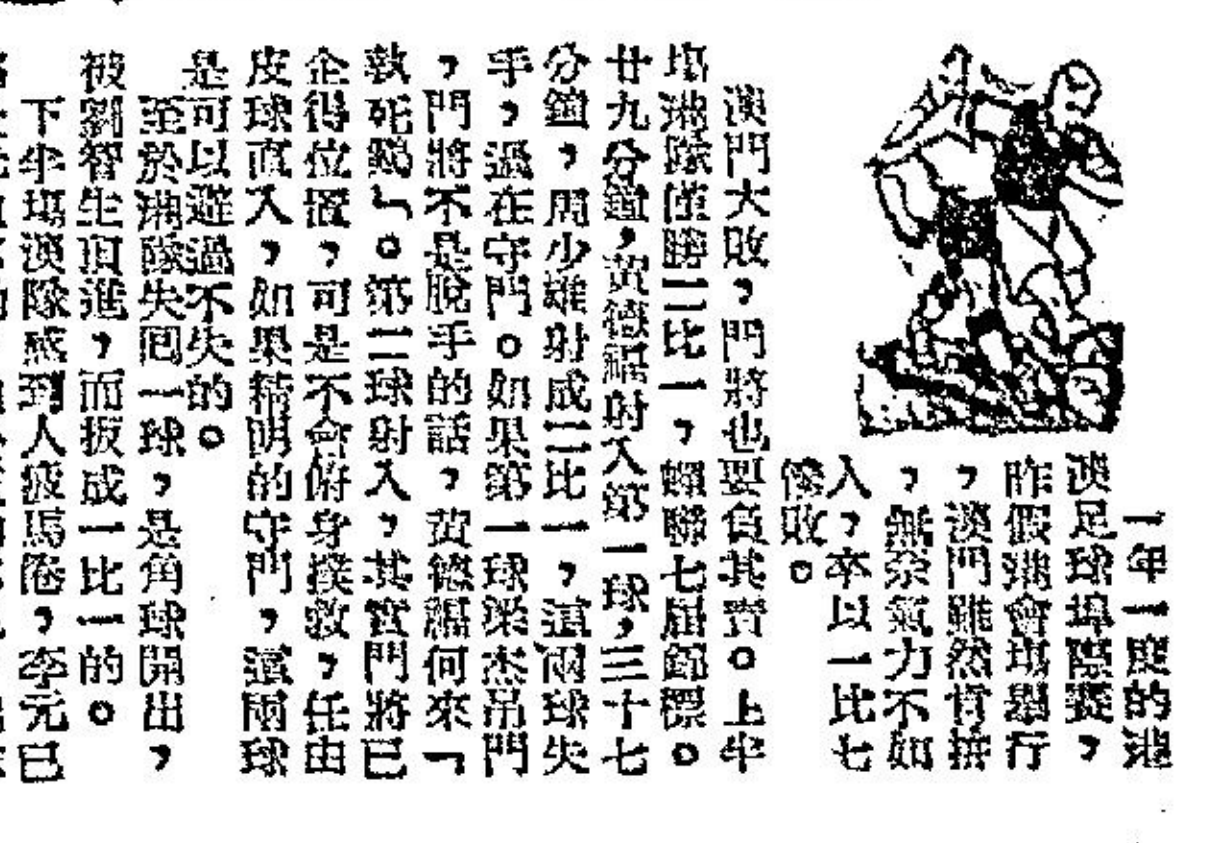 一年一度的港
澳足球埠際賽，
昨假港會塲舉行
，澳門雖然肯拚
，無奈氣力不如
人，卒以一比七
慘敗。
澳門大敗，門將也要負其責。上半
塲港隊僅勝二比一，蟬聯七屆錦標。
廿九分鐘，黃德錕射入第一球，三十七
分鐘，周少雄射成二比一，這兩球失
手，過在守門。如果第一球梁杰吊門
，門將不是脫手的話，黃德錕何來「
執死鷄」。第二球射入，其實門將已
企得位置，可是不會俯身撲救，任由
皮球直入，如果精明的守門，這兩球
是可以避過不失的。
至於港隊失囘一球，是角球開出，
被劉智生頂進，而扳成一比一的。
下半塲澳隊感到人疲馬倦，李元已